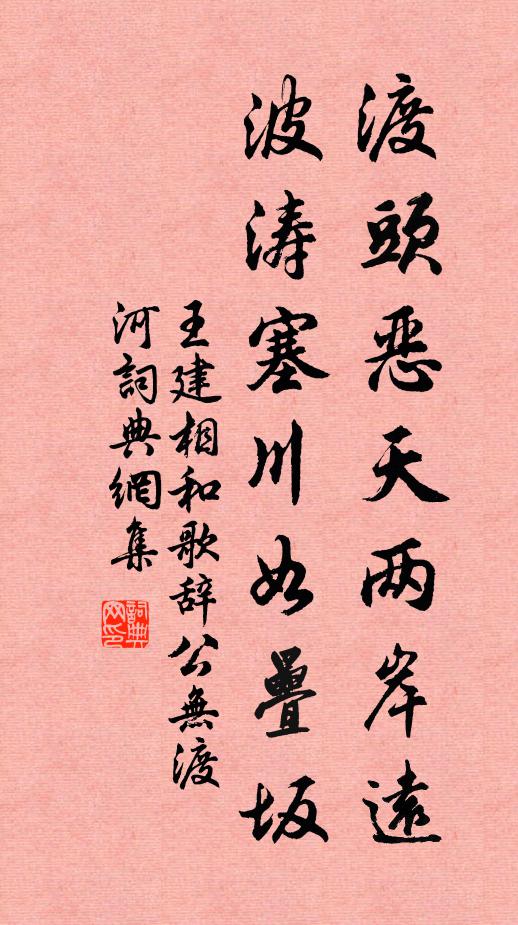 渡頭恶天两岸遠
波涛塞川如疊坂
王建相和歌辞公無渡
河詞典網集
詞典网印